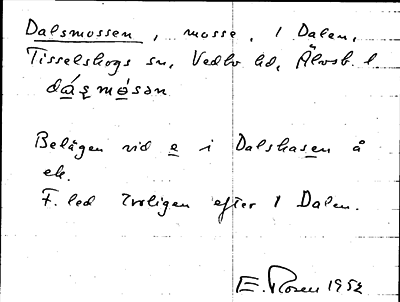 Dalsmossen, mosse, 1 Dalen,
Tisselskogs sn, Vedbo hd, Älvsb. l.
Belägen vid e i Dalshasen å
ek.
F. led troligen efter 1 Dalen.
E. Rosen 1952